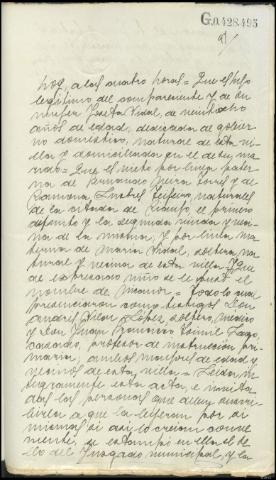 G.0.428.495
hoy, a las cuatro horas = Que es hijo
legítimo del compareciente y de su
mujer Josefa Vidal, de veinticuatro
años de edad, designada de gobier
no doméstico, natural de esta vi
lla y domiciliada en el de su ma
rido = Que es nieto por línea pater
na de Fernando y de
Ramona Teijeiro, naturales
de la citada de el primero
difunto y la segunda viuda y veci
na de la misma, y por línea ma
terna de María Vidal, soltera, na
tural y vecina de esta villa = Y que
el expresado niño se le puso el
nombre de Manuel = Todo lo cual
presenciaron como testigos Don
Andrés López, soltero, médico
y Don Juan Francisco
casado, profesor de instrucción pri
maria, ambos mayores de edad y
vecinos de esta villa = Leída ín
tegramente esta acta, e invita
das las personas que deben suscri
birla a que la leyeran por sí
mismas si así lo creían conve
niente, se estampó en ella el se
llo del Juzgado municipal y la